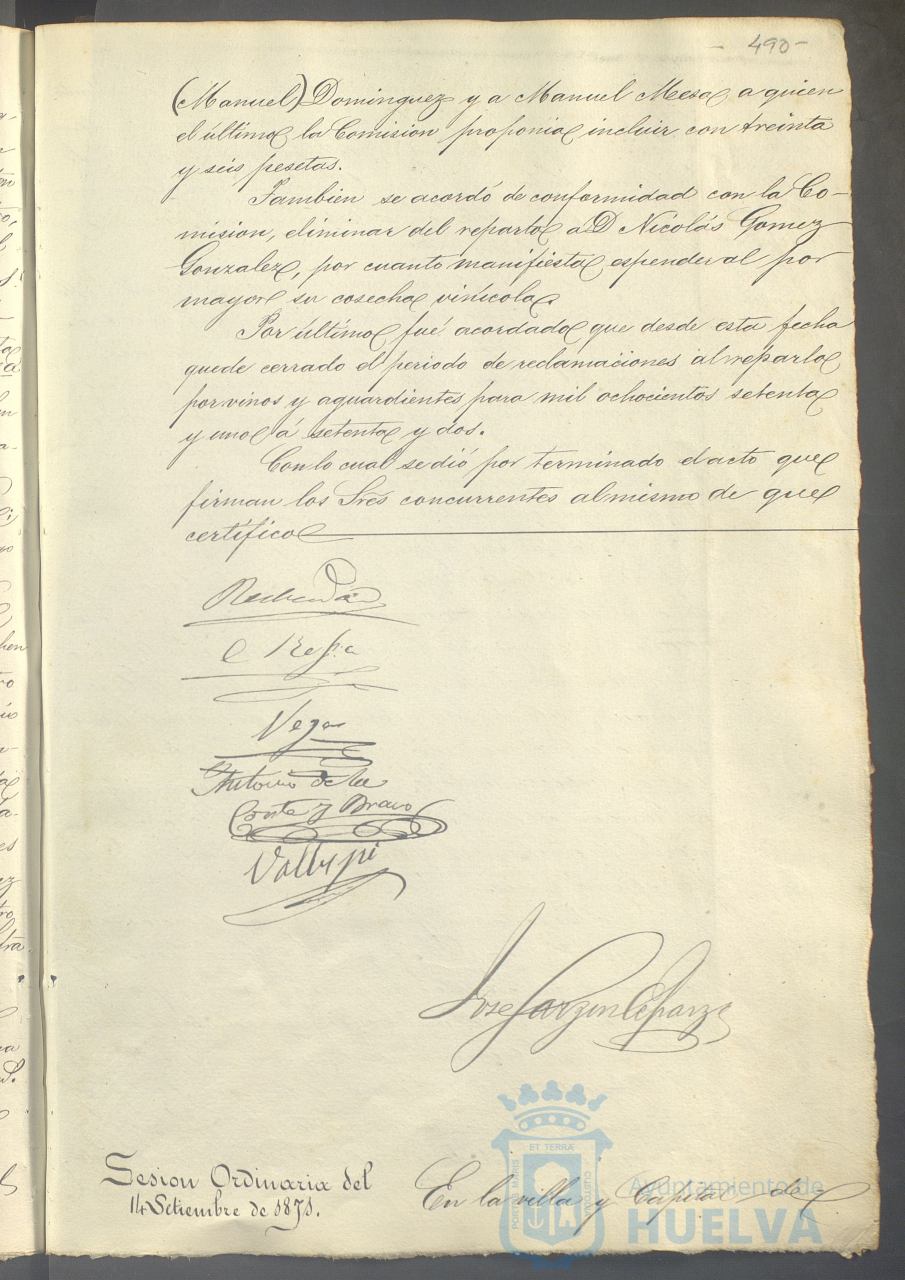 - 490 -
(Manuel) Dominguez y a Manuel Mesa a quien
el último la Comision proponia incluir con treinta
y seis pesetas.
Tambien se acordó de conformidad con la Co-
mision, eliminar del reparto a D Nicolás Gomez
Gonzalez, por cuanto manifiesta espender al por
mayor su cosecha vinícola.
Por último fué acordado que desde esta fecha
quede cerrado el periodo de reclamaciones al reparto
por vinos y aguardientes para mil ochocientos setenta
y uno á setenta y dos.
Con lo cual se dió por terminado el acto que
firman los Sres concurrentes al mismo de que
certífico
Vega
Antonio de la
Corte y Bravo
Jose Garzon
Sesion Ordinaria del
14 Setiembre de 1871.
En la villa y Capital de
Ayuntamiento de
HUELVA
ET TERRÆ
PORTUS MARIS
CUSTODIA